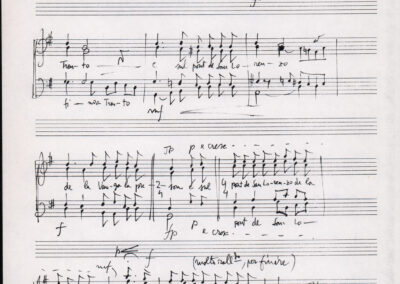 Tren-to e sul pont de San Lo-ren-zo
fi-nor Tren-to
mf
fp p e cresc.
de la Van-ga la pre-son e sul pont de San Lo-ren-zo de la
2 4 4 4
f fp p e cresc. pont de San Lo-
mf f (molto rall., per finire)